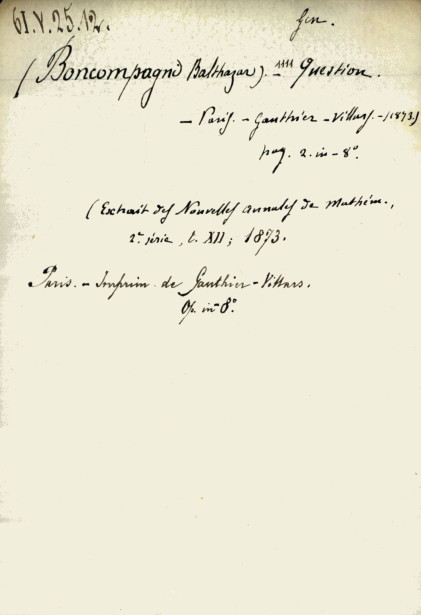 61.V.25.12.
Gen.
(Boncompagni Balthazar). - Question.
- Paris. - Gauthier-Villars. - (1873.)
pag. 2. in-8°.
(Extrait des Nouvelles annales de Mathém.,
2e série, t. XII; 1873.
Paris. - Imprim. de Gauthier-Villars.
Op. in-8°.